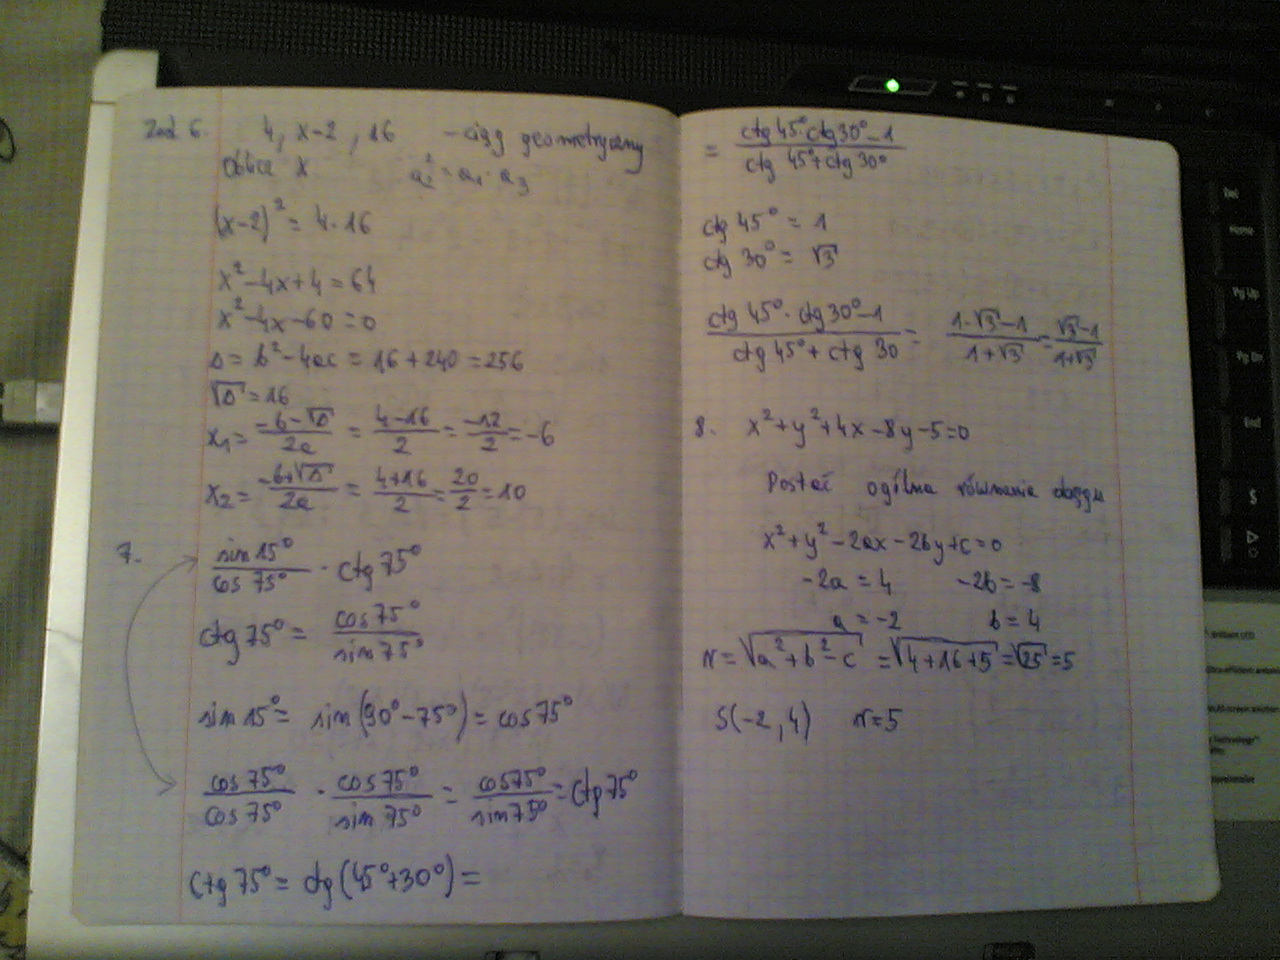 Zad 6. 4, x-2, 16 - ciąg geometryczny
Oblicz x a₂² = a₁ · a₃
(x-2)² = 4·16
x²-4x+4=64
x²-4x-60=0
Δ= b²-4ac = 16+240=256
√Δ=16
x₁= (-b-√Δ)/(2a) = (4-16)/2 = (-12)/2 = -6
x₂= (-b+√Δ)/(2a) = (4+16)/2 = 20/2 = 10
7. (sin 15°)/(cos 75°) · ctg 75°
ctg 75° = (cos 75°)/(sin 75°)
sin 15° = sin (90°-75°) = cos 75°
(cos 75°)/(cos 75°) · (cos 75°)/(sin 75°) = (cos 75°)/(sin 75°) = ctg 75°
ctg 75° = ctg (45°+30°) =
= (ctg 45°·ctg 30°-1)/(ctg 45°+ctg 30°)
ctg 45° = 1
ctg 30° = √3
(ctg 45° · ctg 30°-1)/(ctg 45°+ctg 30) = (1·√3-1)/(1+√3) = (√3-1)/(1+√3)
8. x²+y²+4x-8y-5=0
Postać ogólna równania okręgu
x²+y²-2ax-2by+c=0
-2a = 4 -2b = -8
a = -2 b = 4
r = √(a²+b²-c) = √(4+16+5) = √25 = 5
S(-2,4) r=5
Home
Pg Up
Pg Dn
End